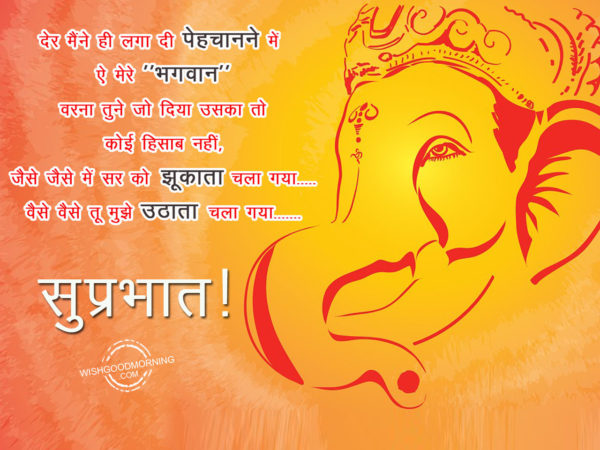 देर मैंने ही लगा दी पेहचानने में
ऐ मेरे ''भगवान''
वरना तुने जो दिया उसका तो
कोई हिसाब नहीं,
जैसे जैसे में सर को झूकाता चला गया.....
वैसे वैसे तू मुझे उठाता चला गया.......
सुप्रभात!
WISHGOODMORNING
.COM